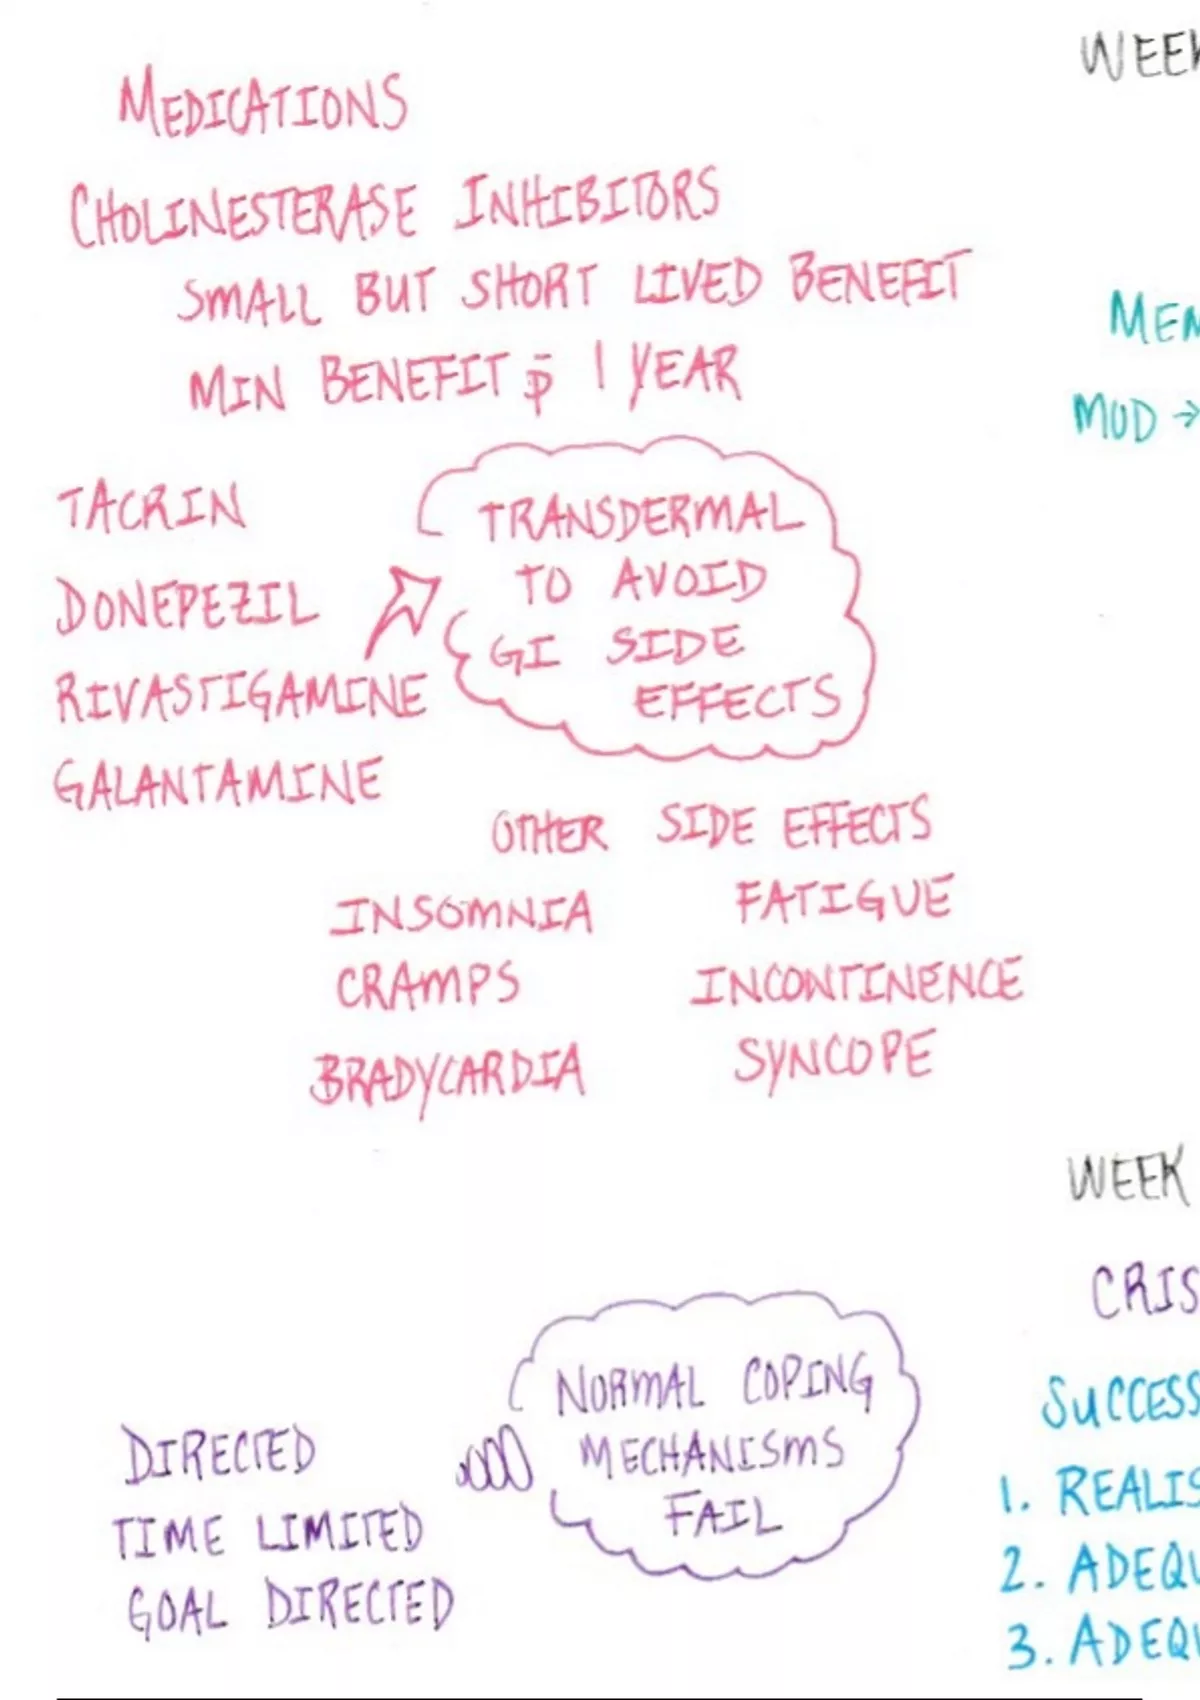 MEDICATIONS
CHOLINESTERASE INHIBITORS
SMALL BUT SHORT LIVED BENEFIT
MIN BENEFIT p̄ 1 YEAR
TACRIN
DONEPEZIL
RIVASTIGAMINE
GALANTAMINE
TRANSDERMAL
TO AVOID
GI SIDE
EFFECTS
OTHER SIDE EFFECTS
INSOMNIA FATIGUE
CRAMPS INCONTINENCE
BRADYCARDIA SYNCOPE
NORMAL COPING
MECHANISMS
FAIL
DIRECTED
TIME LIMITED
GOAL DIRECTED
WEEK
MEN
MOD →
WEEK
CRIS
SUCCESS
1. REALIS
2. ADEQU
3. ADEQU